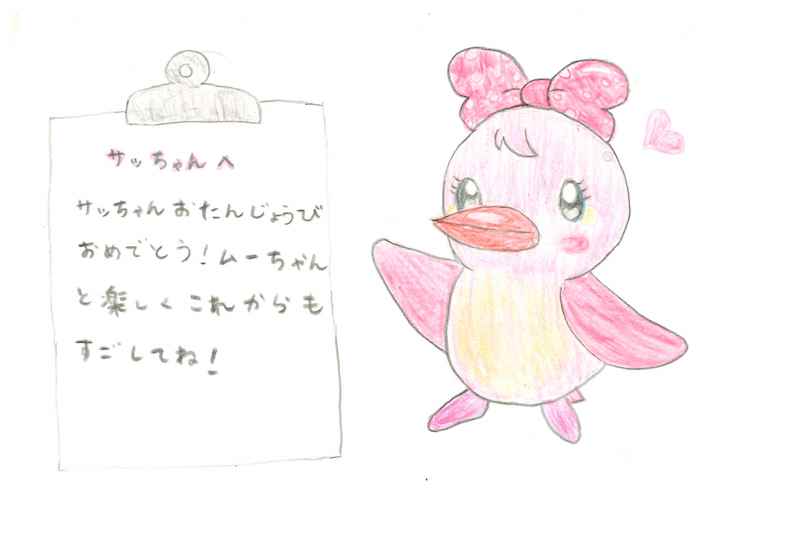 サッちゃんへ
サッちゃんおたんじょうび
おめでとう！ムーちゃん
と楽しくこれからも
すごしてね！